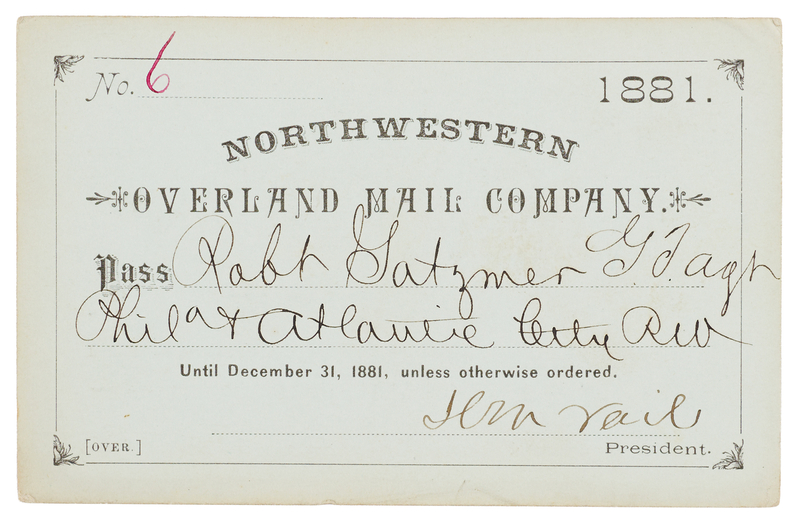 No. 6 1881.
NORTHWESTERN
OVERLAND MAIL COMPANY.
Pass Robt Gatzmer G. F. agt
Phila & Atlantic City RW
Until December 31, 1881, unless otherwise ordered.
Vail
[OVER.] President.